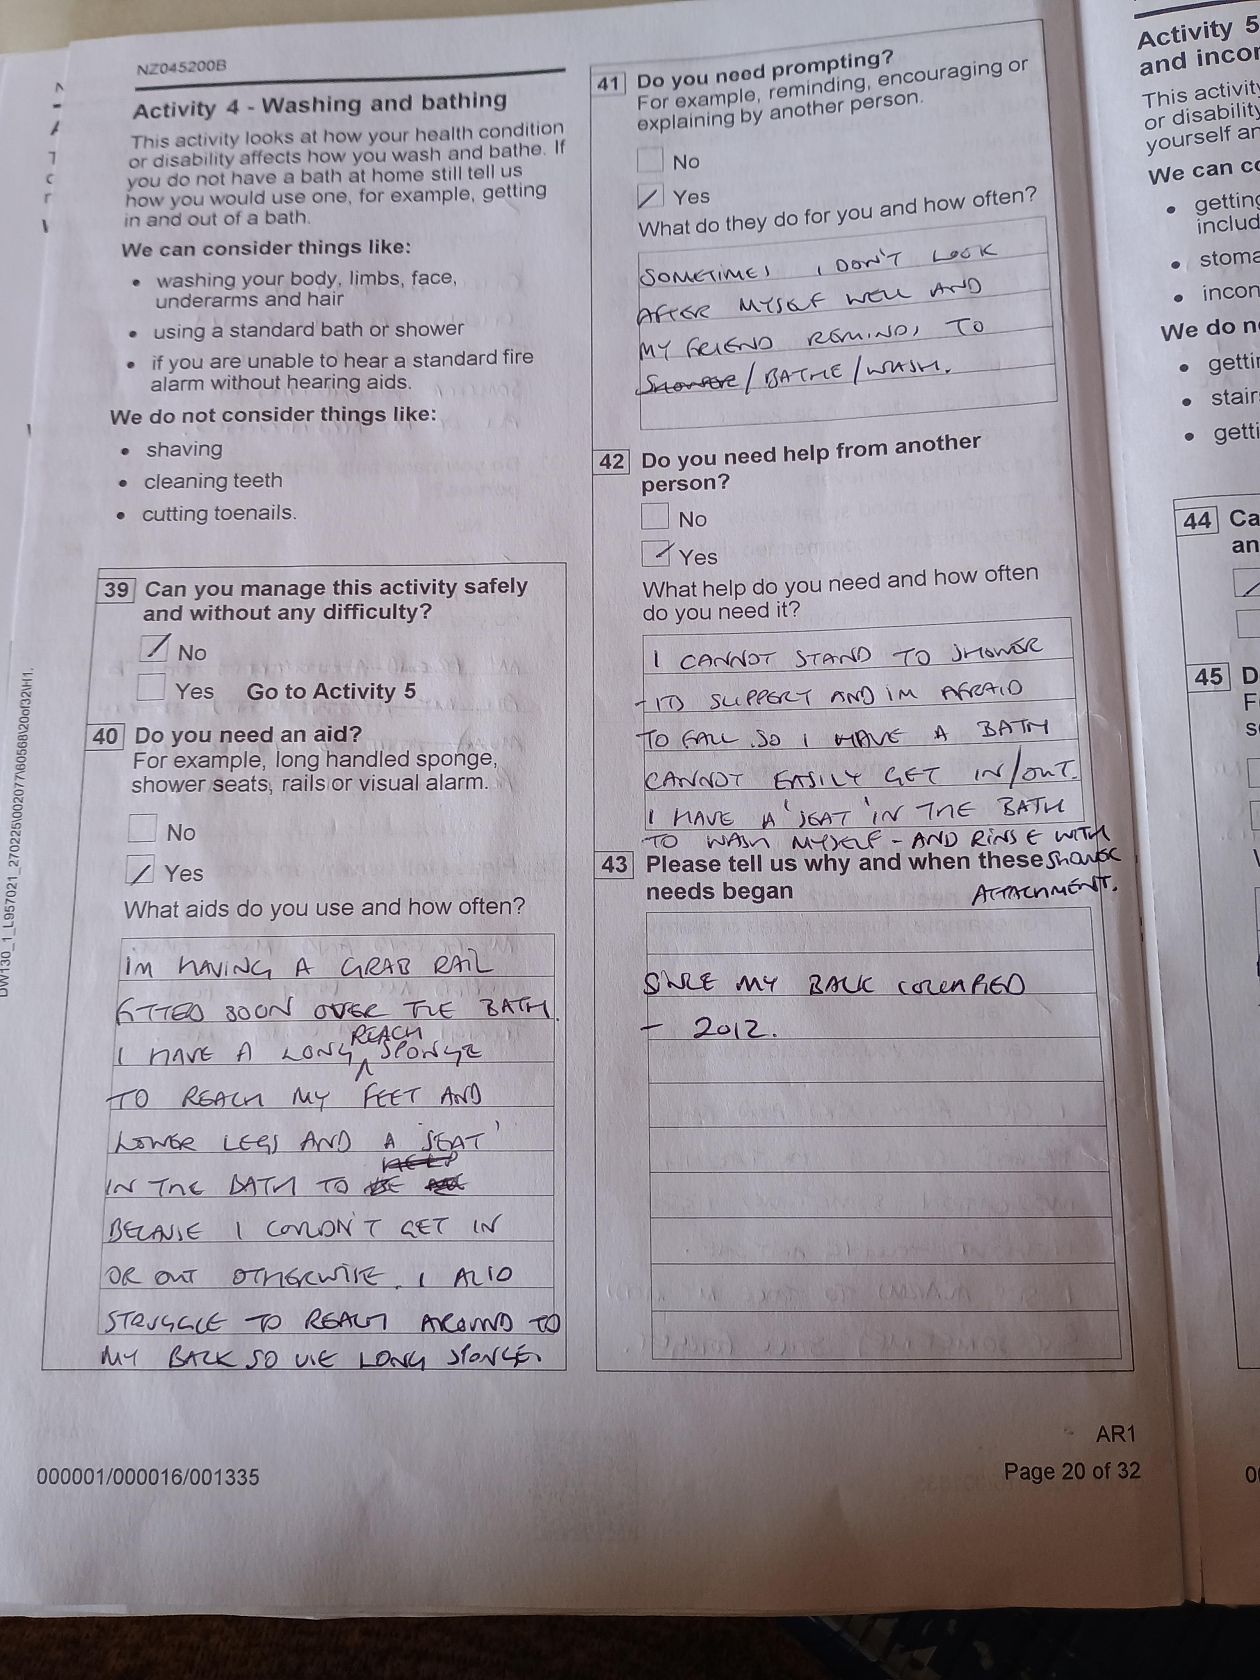 NZ045200B
Activity 4 - Washing and bathing
This activity looks at how your health condition
or disability affects how you wash and bathe. If
you do not have a bath at home still tell us
how you would use one, for example, getting
in and out of a bath.
We can consider things like:
• washing your body, limbs, face,
underarms and hair
• using a standard bath or shower
• if you are unable to hear a standard fire
alarm without hearing aids.
We do not consider things like:
• shaving
• cleaning teeth
• cutting toenails.
39 Can you manage this activity safely
and without any difficulty?
No
Yes Go to Activity 5
40 Do you need an aid?
For example, long handled sponge,
shower seats, rails or visual alarm.
No
Yes
What aids do you use and how often?
IM HAVING A GRAB RAIL
FITTED SOON OVER THE BATH.
I HAVE A LONG REACH SPONGE
TO REACH MY FEET AND
LOWER LEGS AND A 'SEAT'
IN THE BATH TO
BECAUSE I COULDN'T GET IN
OR OUT OTHERWISE. I ALSO
STRUGGLE TO REACH AROUND TO
MY BACK SO USE LONG SPONGE.
41 Do you need prompting?
For example, reminding, encouraging or
explaining by another person.
No
Yes
What do they do for you and how often?
SOMETIMES I DON'T LOOK
AFTER MYSELF WELL AND
MY FRIEND REMINDS TO
/BATHE/WASH.
42 Do you need help from another
person?
No
Yes
What help do you need and how often
do you need it?
I CANNOT STAND TO SHOWER
SUPPORT AND IM AFRAID
TO FALL. SO I HAVE A BATH
CANNOT EASILY GET IN/OUT.
I HAVE A 'SEAT' IN THE BATH
TO WASH MYSELF - AND RINSE WITH
SHOWER
ATTACHMENT.
43 Please tell us why and when these
needs began
SINCE MY BACK COLLAPSED
- 2012.
AR1
000001/000016/001335
Page 20 of 32
DW130_1_L957021_270225\002077\60568\20of32\H1.
Activity 5
and
This activity
or disability
yourself
We can
• getting
• stoma
•
We do
•
•
•
44
45